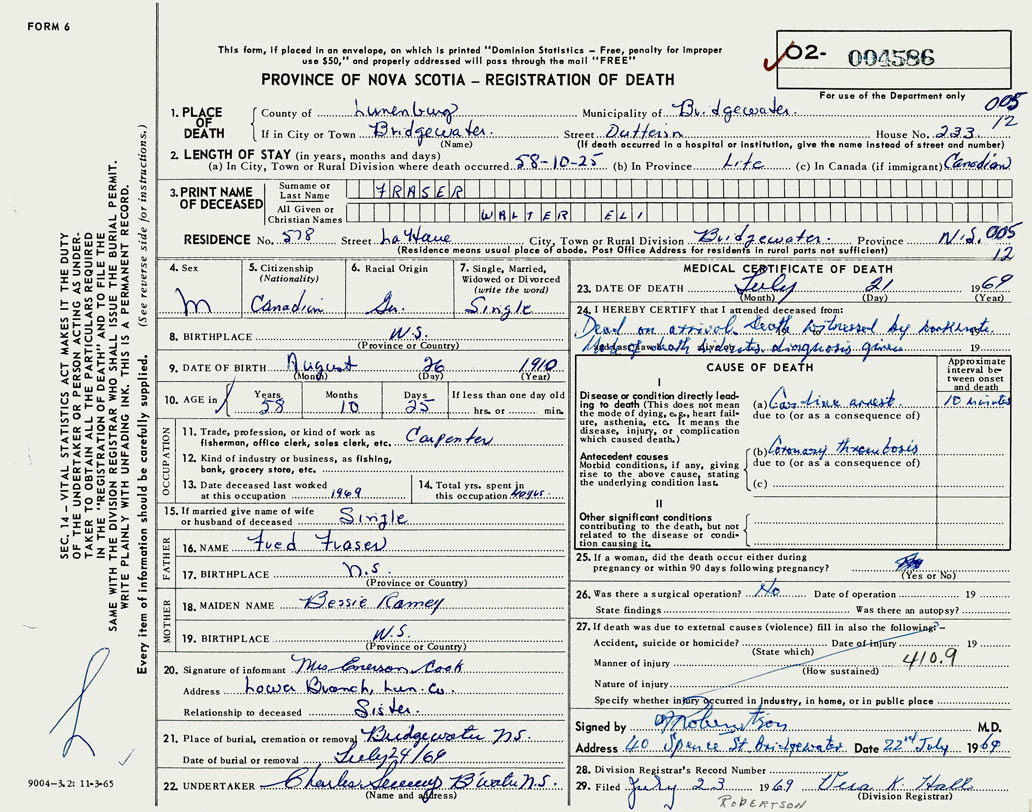 FORM 6
This form, if placed in an envelope, on which is printed "Dominion Statistics – Free, penalty for improper
use $50," and properly addressed will pass through the mail "FREE"
PROVINCE OF NOVA SCOTIA – REGISTRATION OF DEATH
02- 004586
For use of the Department only
005
12
1. PLACE OF DEATH
County of Lunenburg Municipality of Bridgewater.
If in City or Town Bridgewater. Street Dufferin House No. 233
(Name) (If death occurred in a hospital or institution, give the name instead of street and number)
2. LENGTH OF STAY (in years, months and days)
(a) In City, Town or Rural Division where death occurred 58-10-25 (b) In Province Life (c) In Canada (if immigrant) Canadian
3. PRINT NAME OF DECEASED
Surname or Last Name FRASER
All Given or Christian Names WALTER ELI
RESIDENCE No. 578 Street LaHave City, Town or Rural Division Bridgewater. Province N.S. 005
(Residence means usual place of abode. Post Office Address for residents in rural parts not sufficient) 12
4. Sex M
5. Citizenship (Nationality) Canadian
6. Racial Origin Ger.
7. Single, Married, Widowed or Divorced (write the word) Single
8. BIRTHPLACE N.S.
(Province or Country)
9. DATE OF BIRTH August 26 1910
(Month) (Day) (Year)
10. AGE in Years 58 Months 10 Days 25 If less than one day old
hrs. or min.
OCCUPATION
11. Trade, profession, or kind of work as
fisherman, office clerk, sales clerk, etc. Carpenter
12. Kind of industry or business, as fishing,
bank, grocery store, etc.
13. Date deceased last worked
at this occupation 1969
14. Total yrs. spent in
this occupation 40 yrs.
15. If married give name of wife
or husband of deceased Single
FATHER
16. NAME Fred Fraser
17. BIRTHPLACE N.S.
(Province or Country)
MOTHER
18. MAIDEN NAME Bessie Ramey
19. BIRTHPLACE N.S.
(Province or Country)
20. Signature of informant Mrs Emerson Cook
Address Lower Branch, Lun. Co.
Relationship to deceased Sister.
21. Place of burial, cremation or removal Bridgewater N.S.
Date of burial or removal July 24/69
22. UNDERTAKER Charles B'water N.S.
(Name and address)
MEDICAL CERTIFICATE OF DEATH
23. DATE OF DEATH July 21 1969
(Month) (Day) (Year)
24. I HEREBY CERTIFY that I attended deceased from:
Dead on arrival. Death witnessed by 19
of death diagnosis given 19
CAUSE OF DEATH
Approximate interval between onset and death
I
Disease or condition directly leading to death (This does not mean the mode of dying, e.g., heart failure, asthenia, etc. It means the disease, injury, or complication which caused death.)
(a) Cardiac arrest. 10 minutes
due to (or as a consequence of)
Antecedent causes
Morbid conditions, if any, giving rise to the above cause, stating the underlying condition last.
(b) Coronary thrombosis
due to (or as a consequence of)
(c)
II
Other significant conditions
contributing to the death, but not related to the disease or condition causing it.
25. If a woman, did the death occur either during
pregnancy or within 90 days following pregnancy?
(Yes or No)
26. Was there a surgical operation? No Date of operation 19
State findings Was there an autopsy?
27. If death was due to external causes (violence) fill in also the following:–
Accident, suicide or homicide? Date of injury 19
(State which)
Manner of injury 410.9
(How sustained)
Nature of injury
Specify whether injury occurred in Industry, in home, or in public place
Signed by Robertson M.D.
Address 40 Spence St. Bridgewater Date 22nd July 1969
28. Division Registrar's Record Number
29. Filed July 23 1969 Vera K. Hall
(Division Registrar)
ROBERTSON
SEC. 14 – VITAL STATISTICS ACT MAKES IT THE DUTY
OF THE UNDERTAKER OR PERSON ACTING AS UNDER-
TAKER TO OBTAIN ALL THE PARTICULARS REQUIRED
IN THE "REGISTRATION OF DEATH" AND TO FILE THE
SAME WITH THE DIVISION REGISTRAR WHO SHALL ISSUE THE BURIAL PERMIT.
WRITE PLAINLY WITH UNFADING INK. THIS IS A PERMANENT RECORD.
Every item of information should be carefully supplied. (See reverse side for instructions.)
9004-3.2: 11-3-65